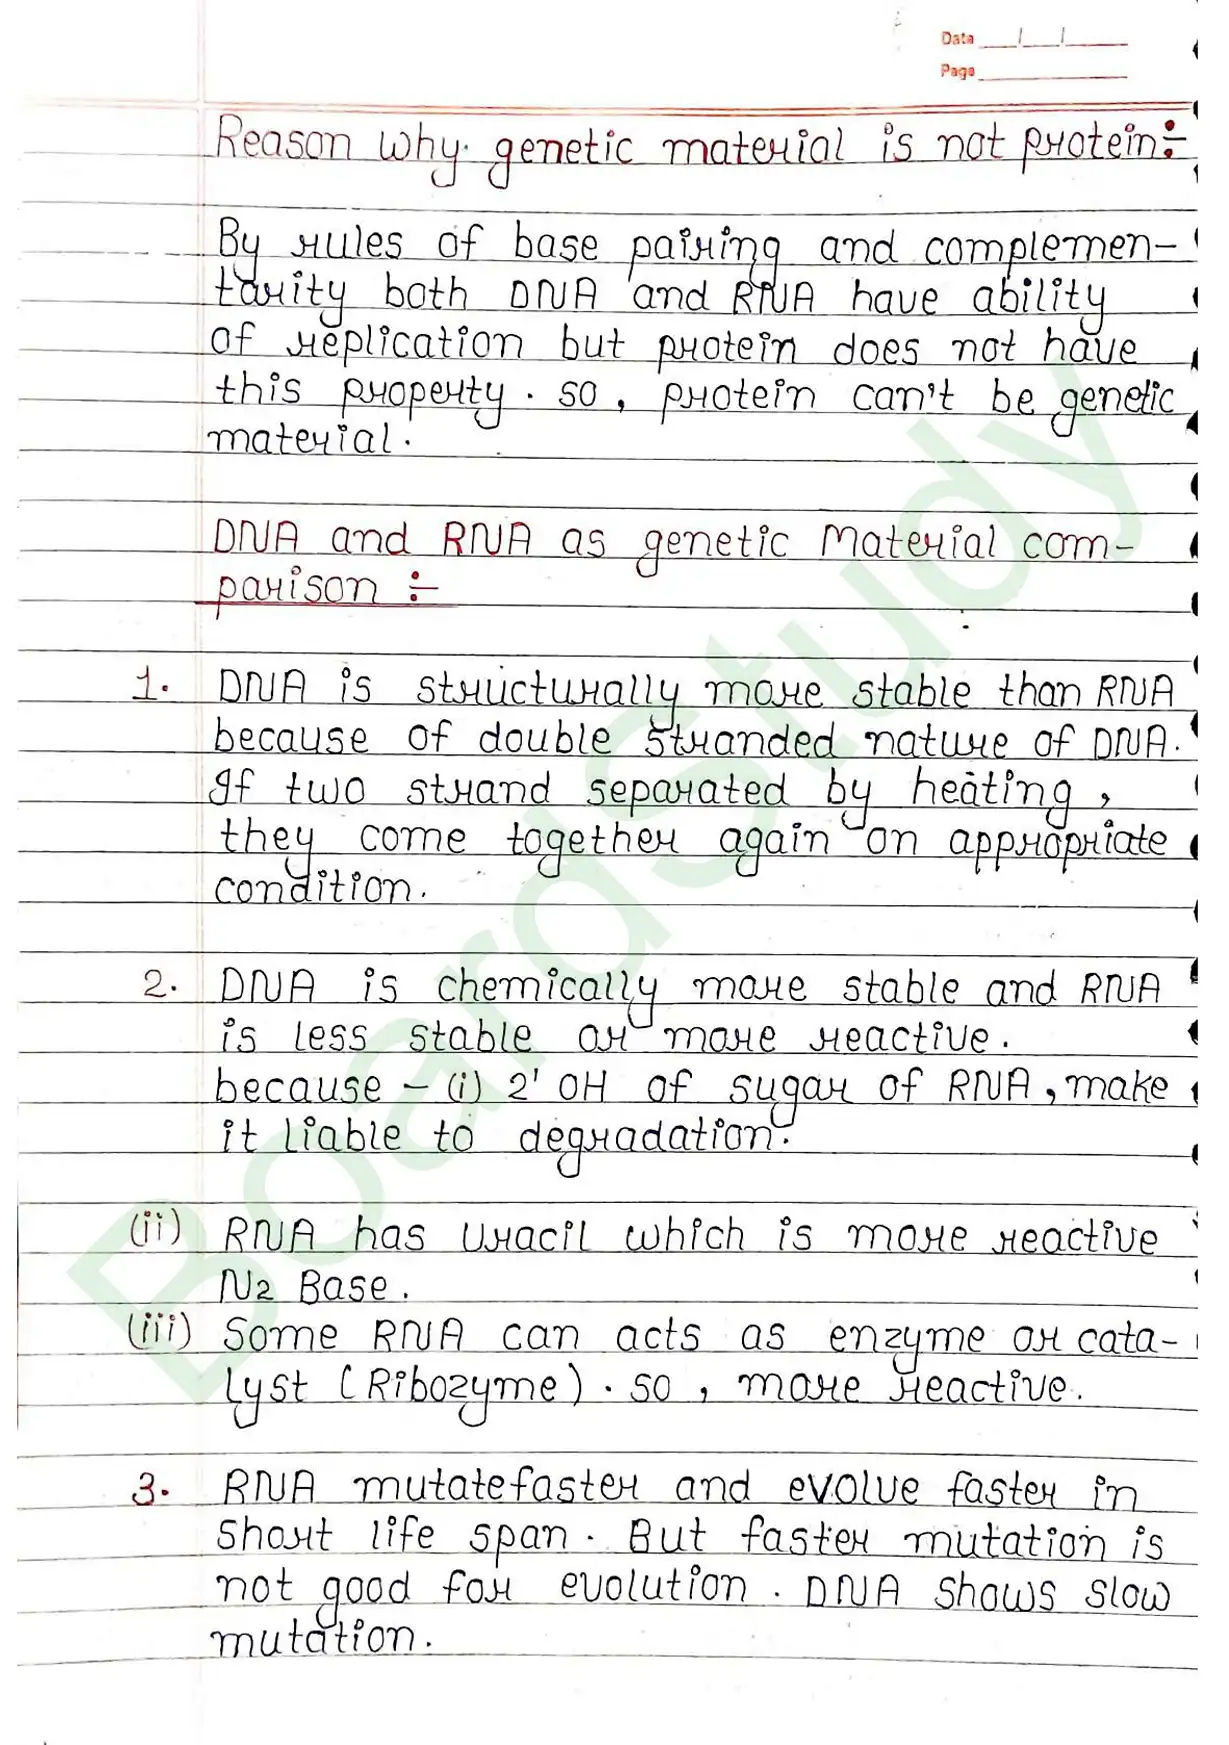 Data __/__/____
Page ________
Reason why genetic material is not protein :-
By rules of base pairing and complemen-
tarity both DNA and RNA have ability
of replication but protein does not have
this property. so, protein can't be genetic
material.
DNA and RNA as genetic Material com-
parison :-
1. DNA is structurally more stable than RNA
because of double stranded nature of DNA.
If two strand separated by heating,
they come together again on appropriate
condition.
2. DNA is chemically more stable and RNA
is less stable or more reactive.
because - (i) 2' OH of sugar of RNA, make
it liable to degradation.
(ii) RNA has Uracil which is more reactive
N2 Base.
(iii) Some RNA can acts as enzyme or cata-
lyst (Ribozyme). so, more reactive.
3. RNA mutate faster and evolve faster in
short life span. But faster mutation is
not good for evolution. DNA shows slow
mutation.
BoardStudy